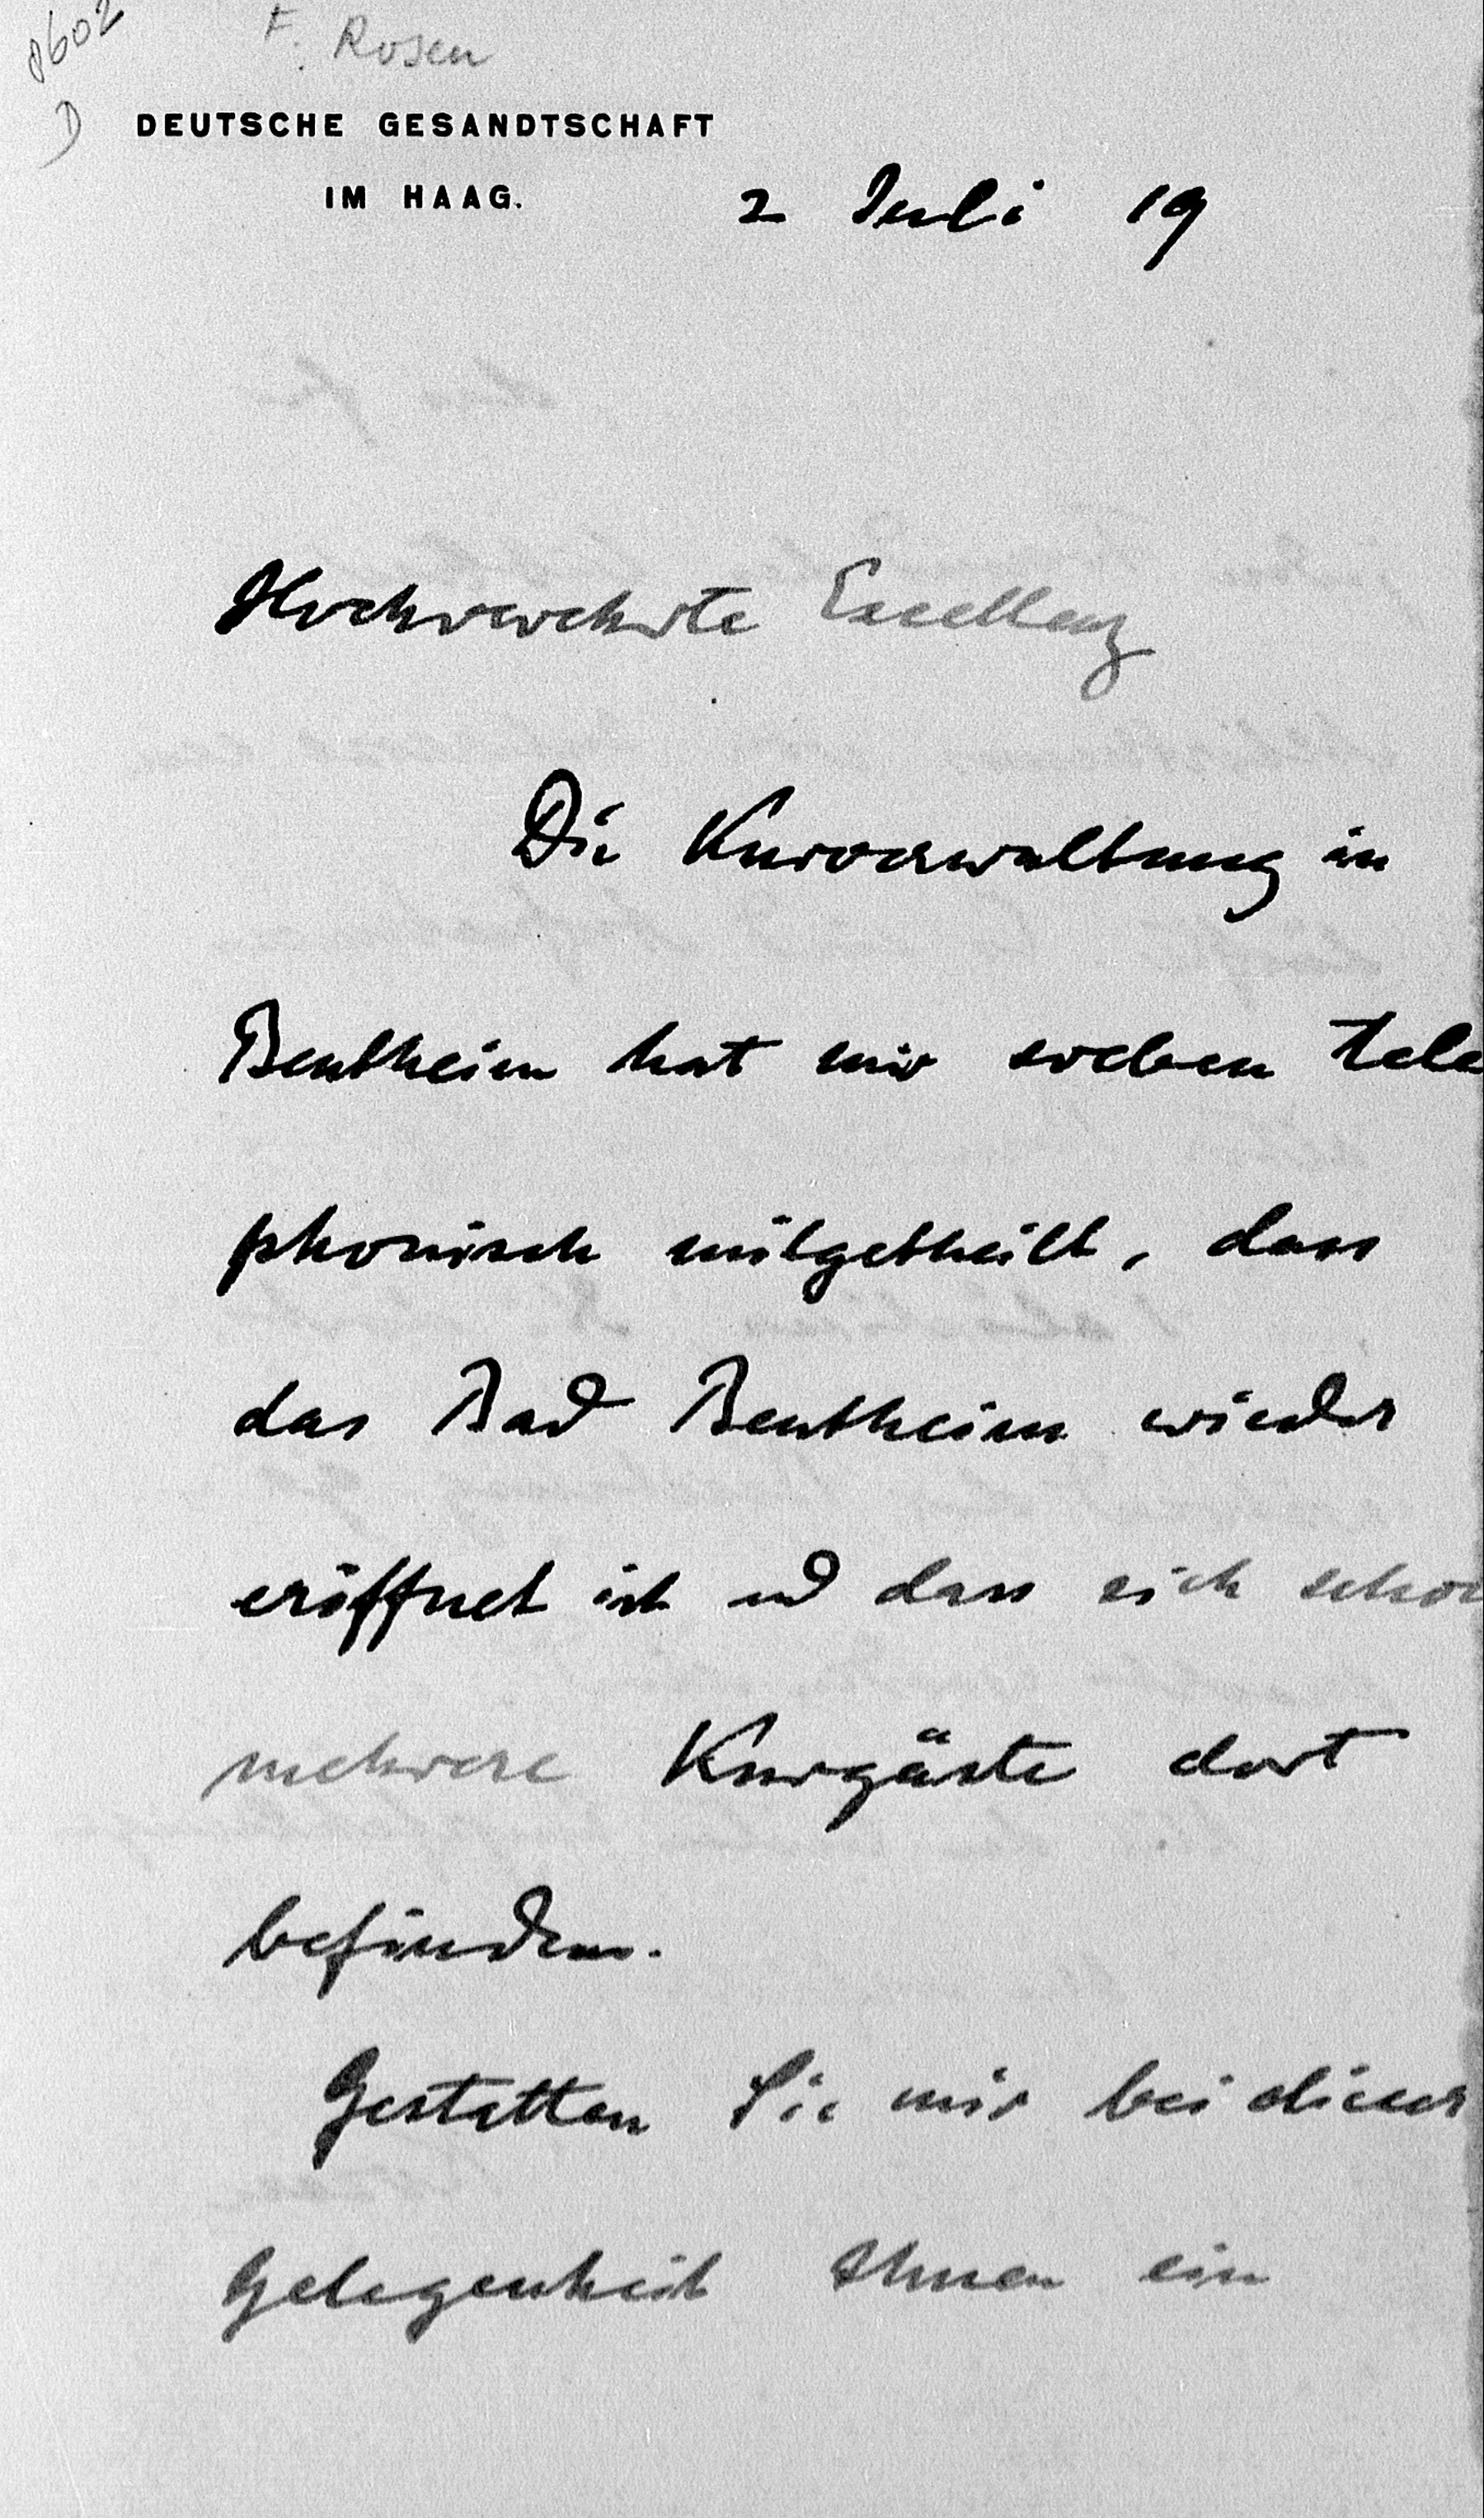 0602
F. Rosen
D
DEUTSCHE GESANDTSCHAFT
IM HAAG.
2 Juli 19
Hochverehrte Excellenz
Die Kurverwaltung in
Bentheim hat mir soeben tele
phonisch mitgetheilt, dass
das Bad Bentheim wieder
eröffnet ist und dass sich schon
mehrere Kurgäste dort
befinden.
Gestatten Sie mir bei dieser
Gelegenheit Ihnen ein